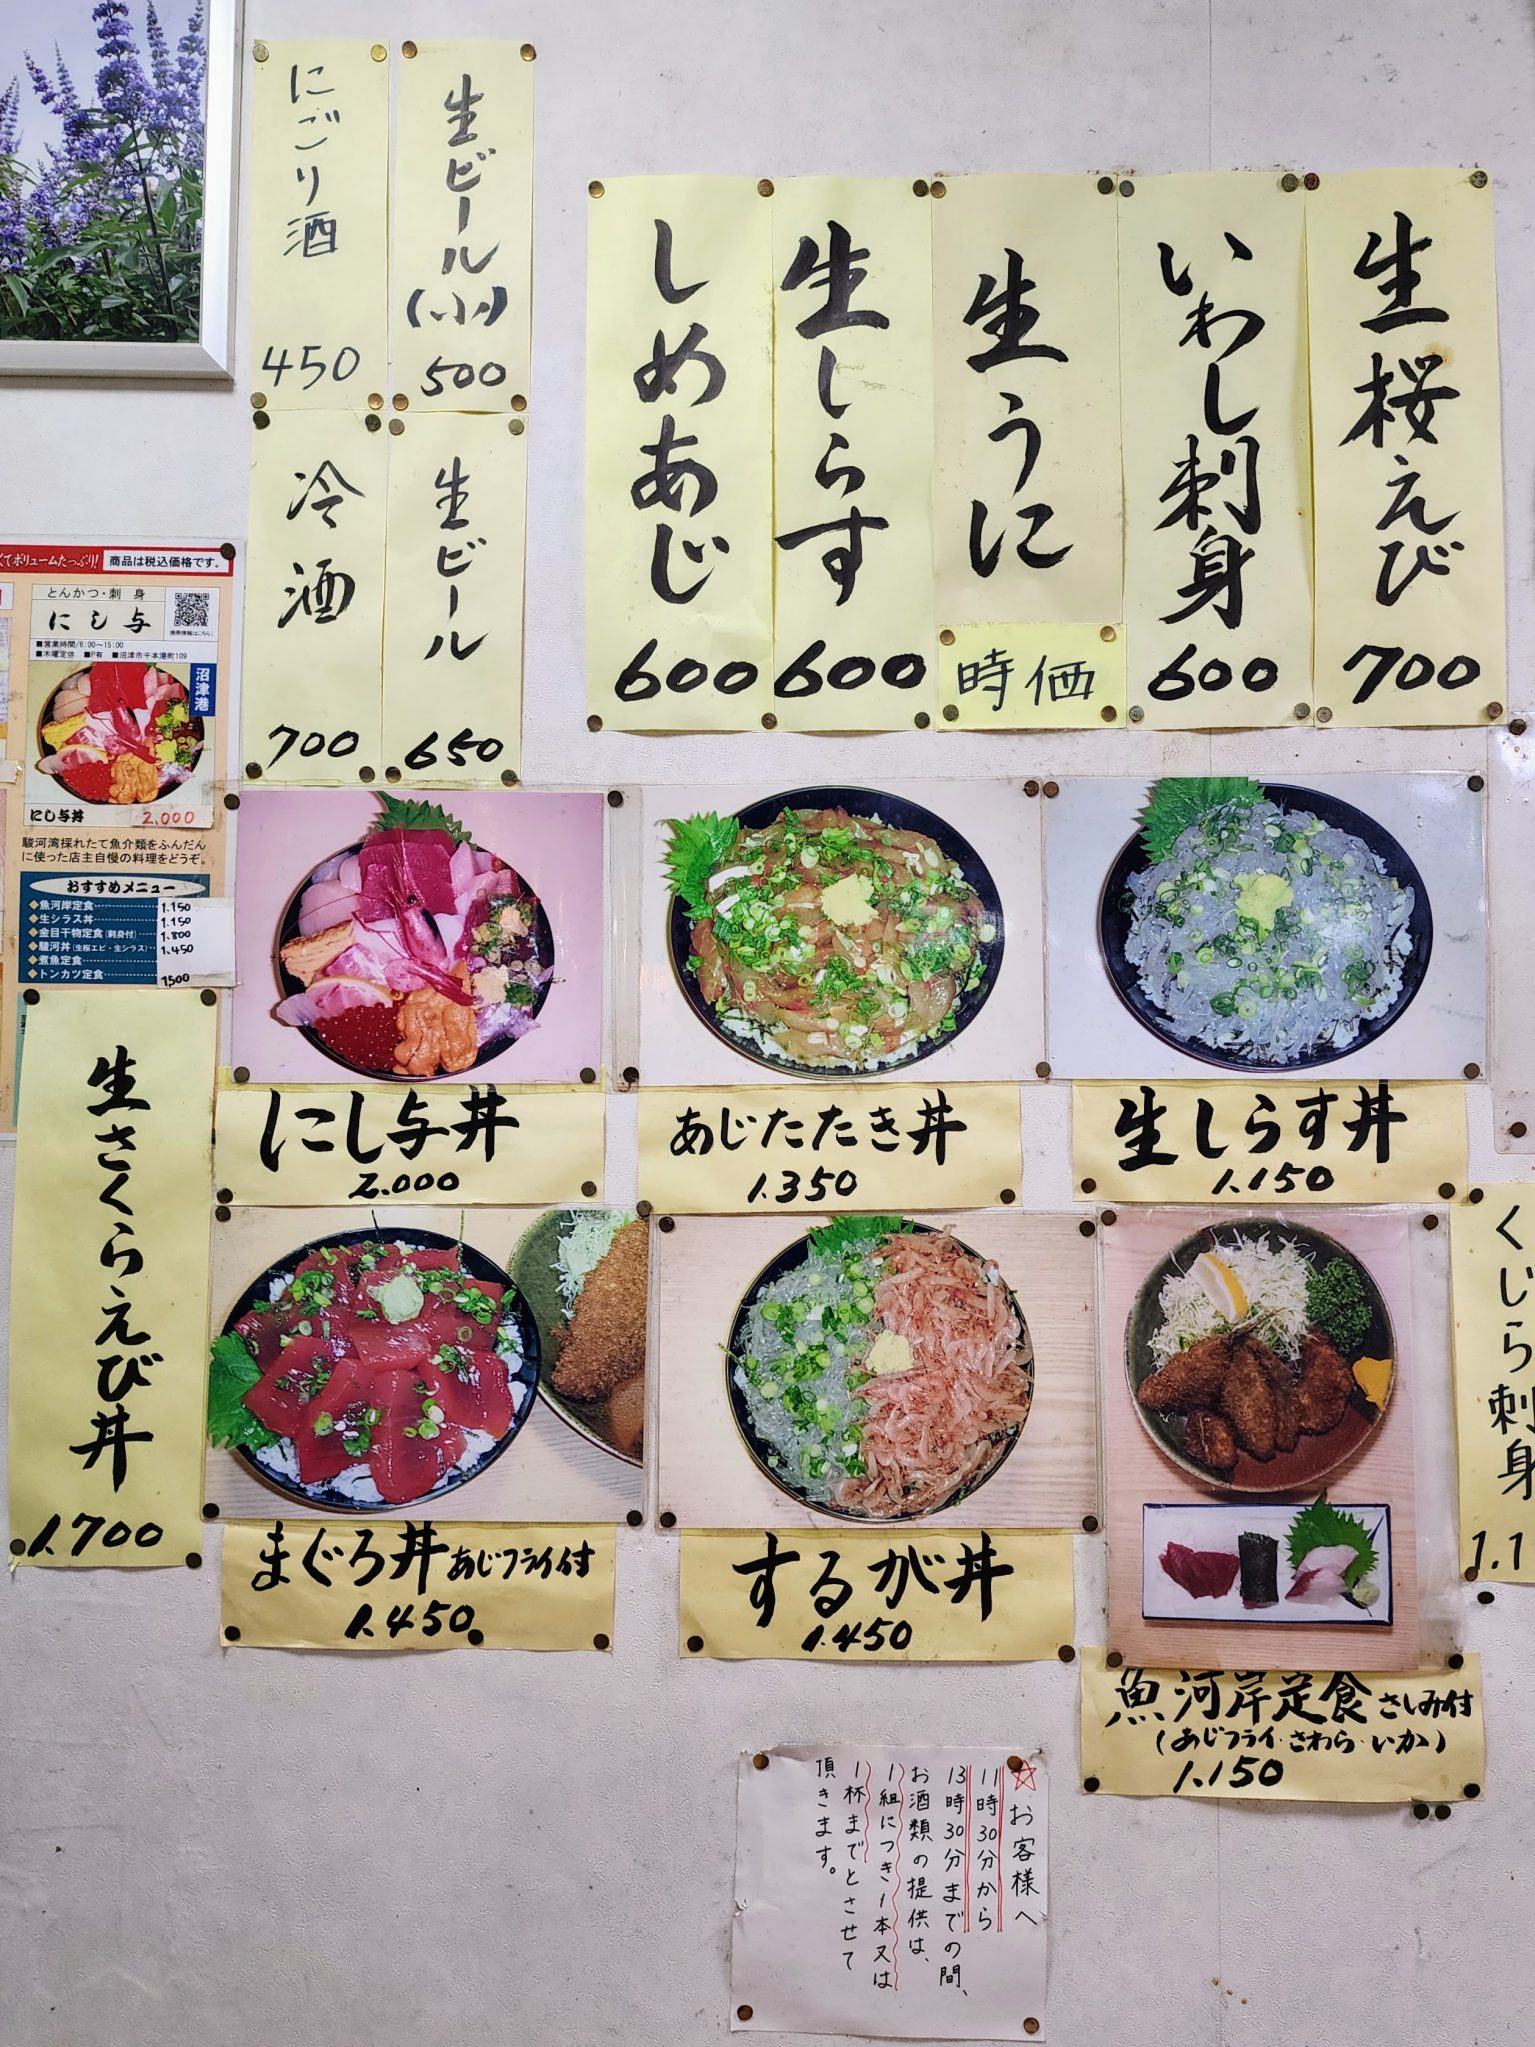 にごり酒
450
生ビール(小)
500
冷酒
700
生ビール
650
しめあじ
600
生しらす
600
生うに
時価
いわし刺身
600
生桜えび
700
くてボリュームたっぷり!
商品は税込価格です。
とんかつ・刺身
にし与
携帯情報はこちら!
■営業時間/6:00〜15:00
■木曜定休 ■P有 ■沼津市千本港町109
沼津港
にし与丼 2,000
駿河湾採れたて魚介類をふんだん
に使った店主自慢の料理をどうぞ。
おすすめメニュー
◆魚河岸定食 1.150
◆生シラス丼 1.150
◆金目干物定食(刺身付) 1.800
◆駿河丼(生桜エビ・生シラス) 1.450
◆煮魚定食
◆トンカツ定食 1500
にし与丼
2.000
あじたたき丼
1.350
生しらす丼
1.150
生さくらえび丼
1.700
まぐろ丼 あじフライ付
1.450
するが丼
1.450
魚河岸定食 さしみ付
(あじフライ・さわら・いか)
1.150
くじら刺身
1.1
☆お客様へ
11時30分から
13時30分までの間、
お酒類の提供は、
1組につき1本又は
1杯までとさせて
頂きます。